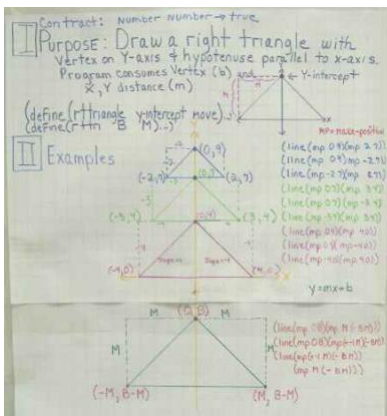 I Contract: Number Number → true
Purpose: Draw a right triangle with
Vertex on Y-axis & hypotenuse parallel to x-axis.
Program consumes Vertex (b) and
X, Y distance (m)
← Y-intercept
M
M
x
(define (rtTriangle y-intercept move)..)
(define (rttn B M)..)
MP = make-posn
II Examples
(0,9)
(-2,7)
(2,7)
(0,7)
(-3,4)
(3,4)
(0,4)
(-4,0)
(4,0)
(line(mp 0 9)(mp 2 7))
(line(mp 0 9)(mp -2 7))
(line(mp -2 7)(mp 2 7))
(line(mp 0 7)(mp 3 4))
(line(mp 0 7)(mp -3 4))
(line(mp -3 4)(mp 3 4))
(line(mp 0 4)(mp 4 0))
(line(mp 0 4)(mp -4 0))
(line(mp -4 0)(mp 4 0))
y=mx+b
(0,B)
M
M
M
M
(-M, B-M)
(M, B-M)
(line(mp 0 B)(mp M (- B M)))
(line(mp 0 B)(mp(* -1 M)(- B M)))
(line(mp(* -1 M)(- B M))
(mp M (- B M)))